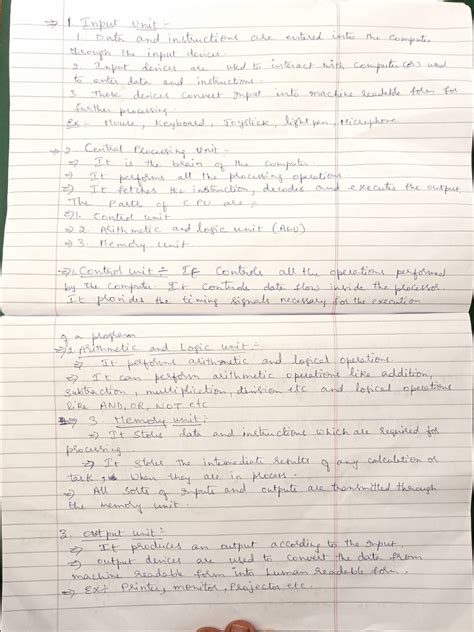 ⇒ 1. Input Unit :-
1. Data and instructions are entered into the Computer
through the input devices.
2. Input devices are used to interact with Computer (or) used
to enter data and instructions.
3. These devices convert input into machine readable form for
further processing.
Ex :- Mouse, Keyboard, Joystick, light pen, Microphone
⇒ 2. Central Processing Unit :-
⇒ It is the brain of the computer.
⇒ It performs all the processing operations
⇒ It fetches the instruction, decodes and executes the output.
The Parts of CPU are :-
⇒ 1. Control unit
⇒ 2. Arithmetic and logic unit (ALU)
⇒ 3. Memory unit.
⇒ 1. Control unit :- It Controls all the operations performed
by the Computer. It Controls data flow inside the processor
It provides the timing signals necessary for the execution
of a program
⇒ 2. Arithmetic and Logic unit :-
⇒ It performs arithmetic and logical operations.
⇒ It can perform arithmetic operations like addition,
subtraction, multiplication, division etc and logical operations
like AND, OR, NOT etc
⇒ 3. Memory unit :
⇒ It stores data and instructions which are required for
processing.
⇒ It stores the intermediate results of any calculation or
task, when they are in process.
⇒ All sorts of inputs and outputs are transmitted through
the memory unit.
3. output unit :
⇒ It produces an output according to the input.
⇒ output devices are used to convert the data from
machine readable form into human readable form.
⇒ Ex :- Printer, monitor, Projector etc.